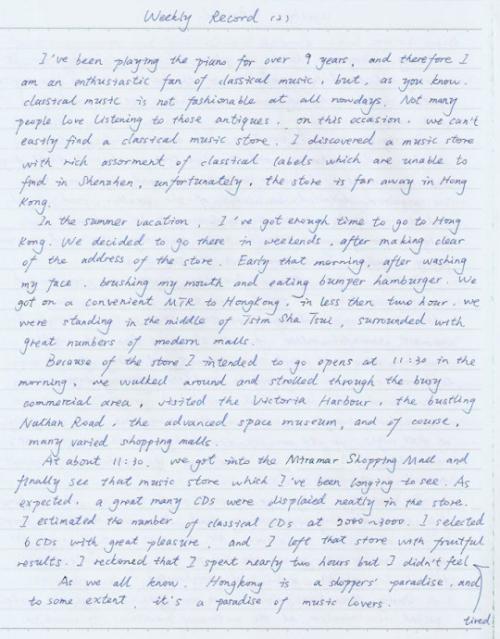 Weekly Record (2)
I've been playing the piano for over 9 years, and therefore I
am an enthustastic fan of classical music, but, as you know.
classical music is not fashionable at all nowdays. Not many
people love listening to those antiques. on this occasion. we can't
eastly find a classical music store. I discovered a music store
with rich assorment of classical labels which are unable to
find in Shenzhen, unfortunately, the store is far away in Hong
Kong.
In the summer vacation, I've got enough time to go to Hong
Kong. We decided to go there in weekends, after making clear
of the address of the store. Early that morning, after washing
my face, brushing my mouth and eating bumper hamburger. We
got on a convenient MTR to Hongkong, in less then two hour. we
were standing in the middle of Tsim Sha Tsui, surrounded with
great numbers of modern malls.
Because of the store I intended to go opens at 11:30 in the
morning, we walked around and strolled through the busy
commercial area, visited the Victoria Harbour, the bustling
Nathan Road, the advanced space museum, and of course,
many varied shopping malls.
At about 11:30, we got into the Miramar Shopping Mall and
finally see that music store which I've been longing to see. As
expected, a great many CDs were displaied neatly in the store.
I estimated the number of classical CDs at 2000~3000. I selected
6 CDs with great pleasure, and I left that store with fruitful
results. I reckoned that I spent nearly two hours but I didn't feel
tired
As we all know, Hongkong is a shoppers' paradise, and
to some extent, it's a paradise of music lovers.